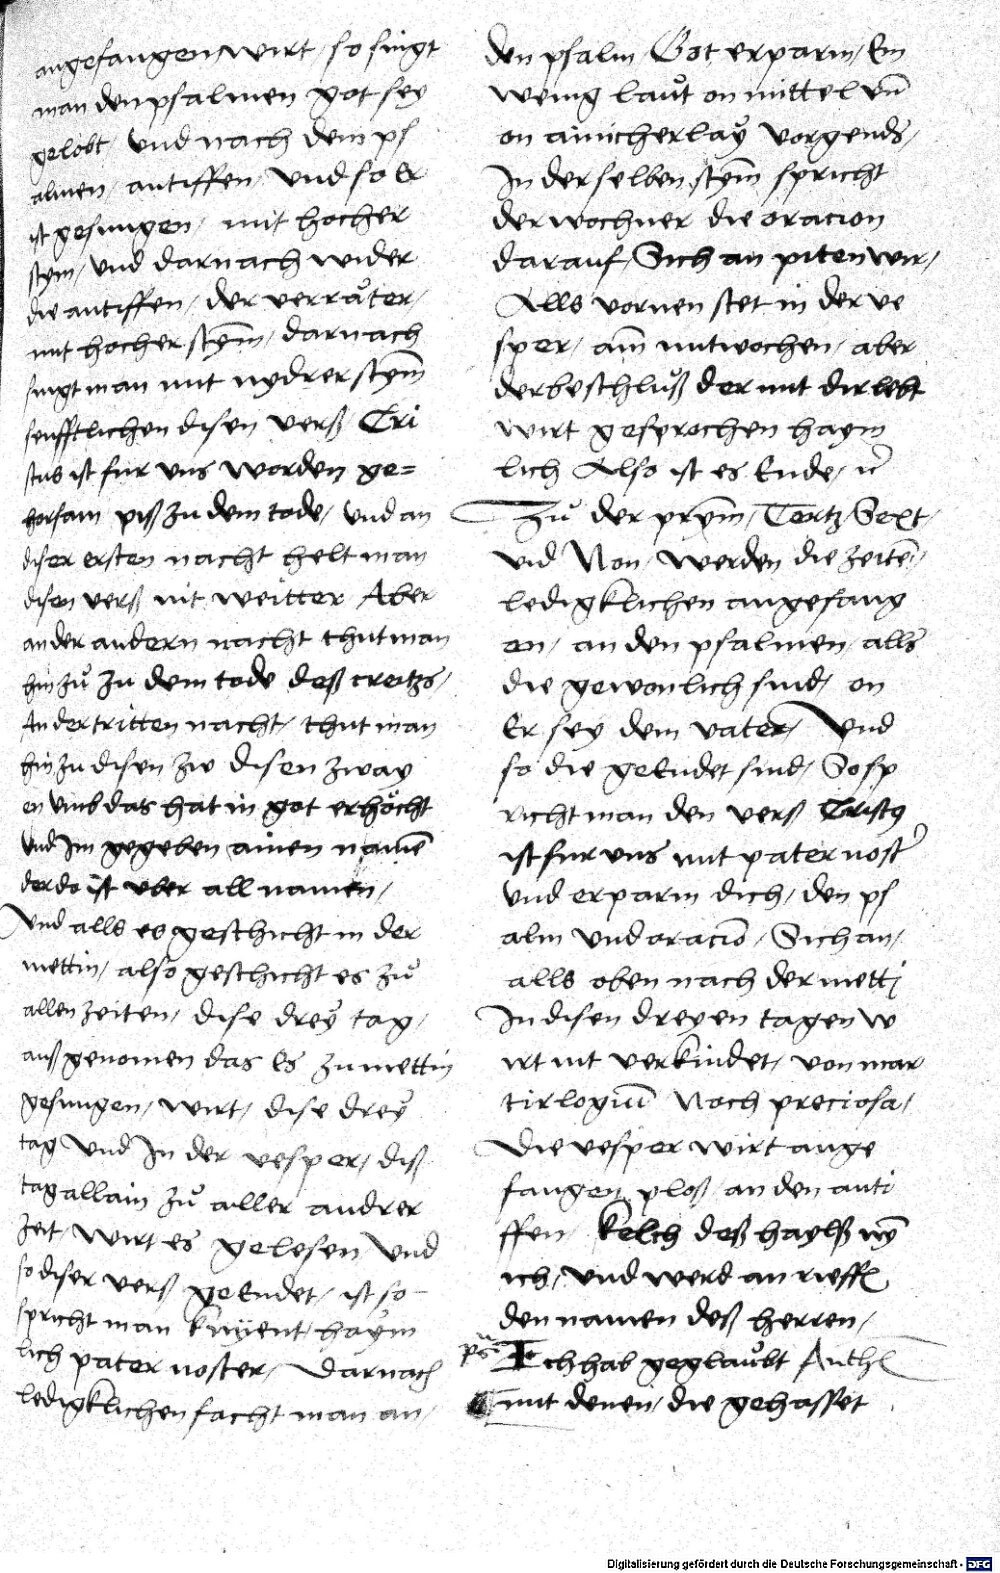 angefangen wirt / so singt
man den psalmen got sey
gelobt / vnd nach dem ps
almen / antiffen / Vnd so Er
ist gesungen / mit hocher
stym / vnd darnach wider
die antiffen / der verräter /
mit hocher stym̅ / darnach
singt man mit nydrer stym̅
senfftlichen disen verß Cri
stus ist fur vns worden ge=
horsam piß zu dem tode / Vnd an
diser ersten nacht helt man
disen verß nit weitter Aber
an der andern nacht thut man
hin zů zu dem tode deß creitzs /
An der tritten nacht / thut man
hin zu disen zw disen zway
en vmb das hat in got erhöcht
Vnd Im gegeben ainen namē
der do ist vber all namen /
Vnd alls es geschicht in der
mettin / also geschicht es zů
allen zeiten / dise dreÿ tag /
auß genomen das Es zu mettin
gesungen / wirt / dise dreÿ
tag Vnd In der vesper / diß
tag allain zů aller andrer
zeit / wirt es gelesen / Vnd
so diser verß geEndet / ist so
spricht man knyent / haym
lich pater noster / Darnach
ledigklichen facht man an /
den psalm Got erparm / Ein
wenig laůt on mittel vn̅
on ainicherlaÿ vorgends /
In der selben stym̅ spricht
der wochner die oracion
darauf / Sich an piten wir /
Alls vornen stet in der ve
sper / am̅ mitwochen / aber
der beschluß der mit dir lebt
wirt gesprochen haym
lich Also ist es Ende /
Zů der prym̅ / Tertz / Sext /
vnd Non / werden die zeiten̅ /
ledigklichen angefang
en / an den psalmen / alls
die gewonlich sind / on
Er sey dem vater / Vnd
so die geEndet sind / So sp
richt man den verß Cristꝰ
ist fur vns mit pater nost̾
Vnd erparm dich / den ps
alm Vnd oracio̅ / Sich an /
alls oben nach der metti
In disen dreyen tagen w
irt nit verkindet / von mar
tirlogiu̅ Noch preciosa /
Die vesper wirt ange
fangen ploß / an den anti
ffen / Kelch deß haylß ny̅
ich / Vnd werd an rieffe̅
den namen deß herren /
ps̄ Ich hab geglaůbt An̅th
mit denen / die gehasset
Digitalisierung gefördert durch die Deutsche Forschungsgemeinschaft - DFG